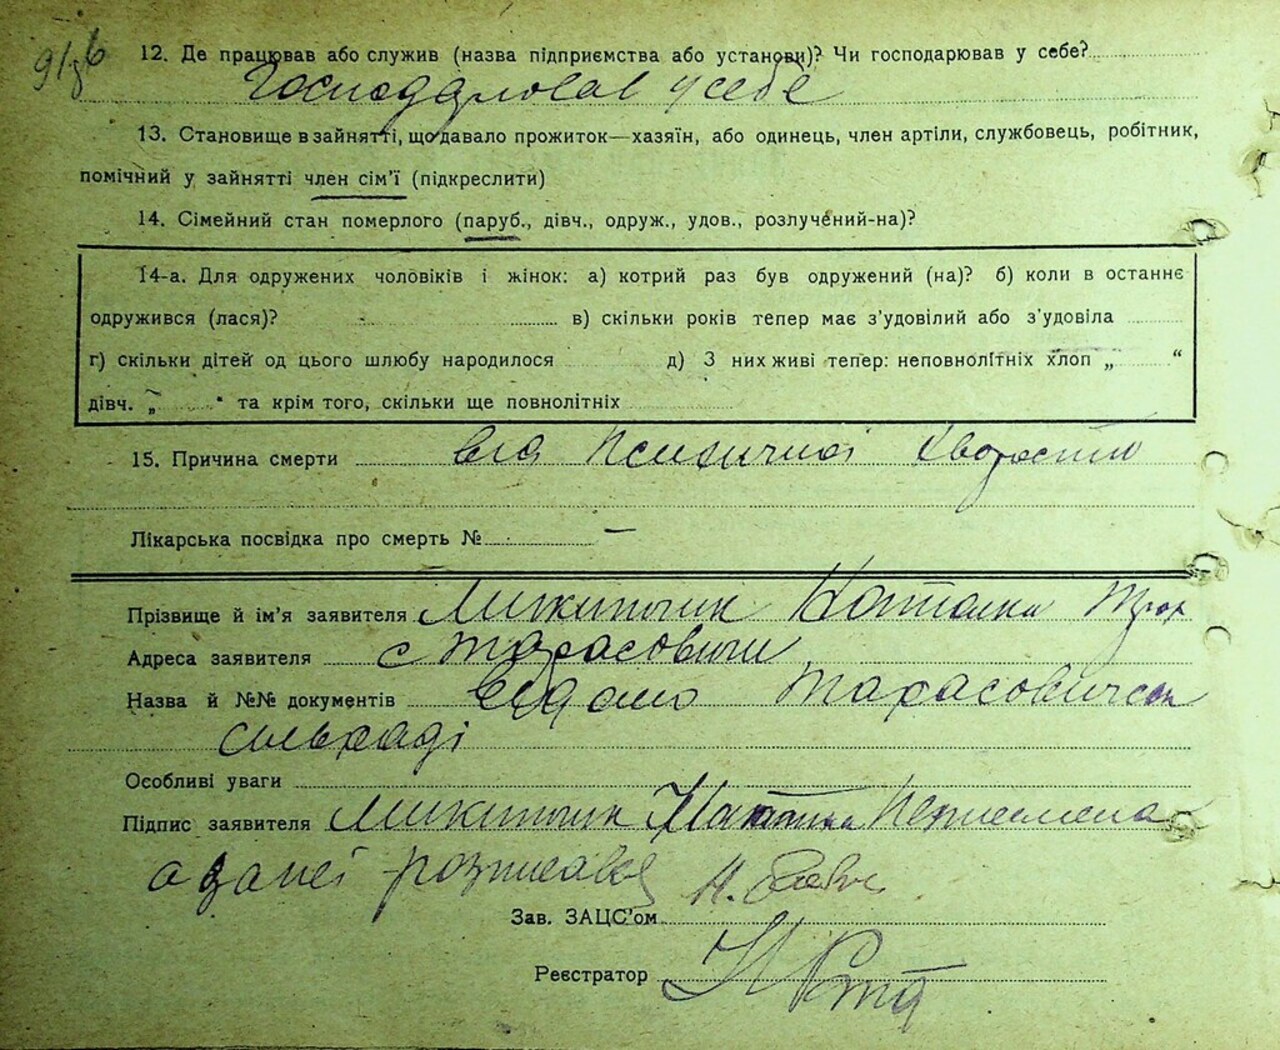 91зв
12. Де працював або служив (назва підприємства або установи)? Чи господарював у себе?
Господарював у себе
13. Становище в зайнятті, що давало прожиток—хазяїн, або одинець, член артіли, службовець, робітник,
помічний у зайнятті член сім'ї (підкреслити)
14. Сімейний стан померлого (паруб., дівч., одруж., удов., розлучений-на)?
14-а. Для одружених чоловіків і жінок: а) котрий раз був одружений (на)? б) коли в останнє
одружився (лася)? в) скільки років тепер має з'удовілий або з'удовіла
г) скільки дітей од цього шлюбу народилося д) З них живі тепер: неповнолітніх хлоп „ “
дівч. „ “ та крім того, скільки ще повнолітніх
15. Причина смерти від психичної хворости
Лікарська посвідка про смерть № —
Прізвище й ім'я заявителя Микитчик Наталка
Адреса заявителя с Тарасовичи
Назва й №№ документів відомо Тарасовичск
сільраді
Особливі уваги
Підпис заявителя Микитчик Наталка неписмена
а за неї розписався Н.
Зав. ЗАЦС'ом
Реєстратор